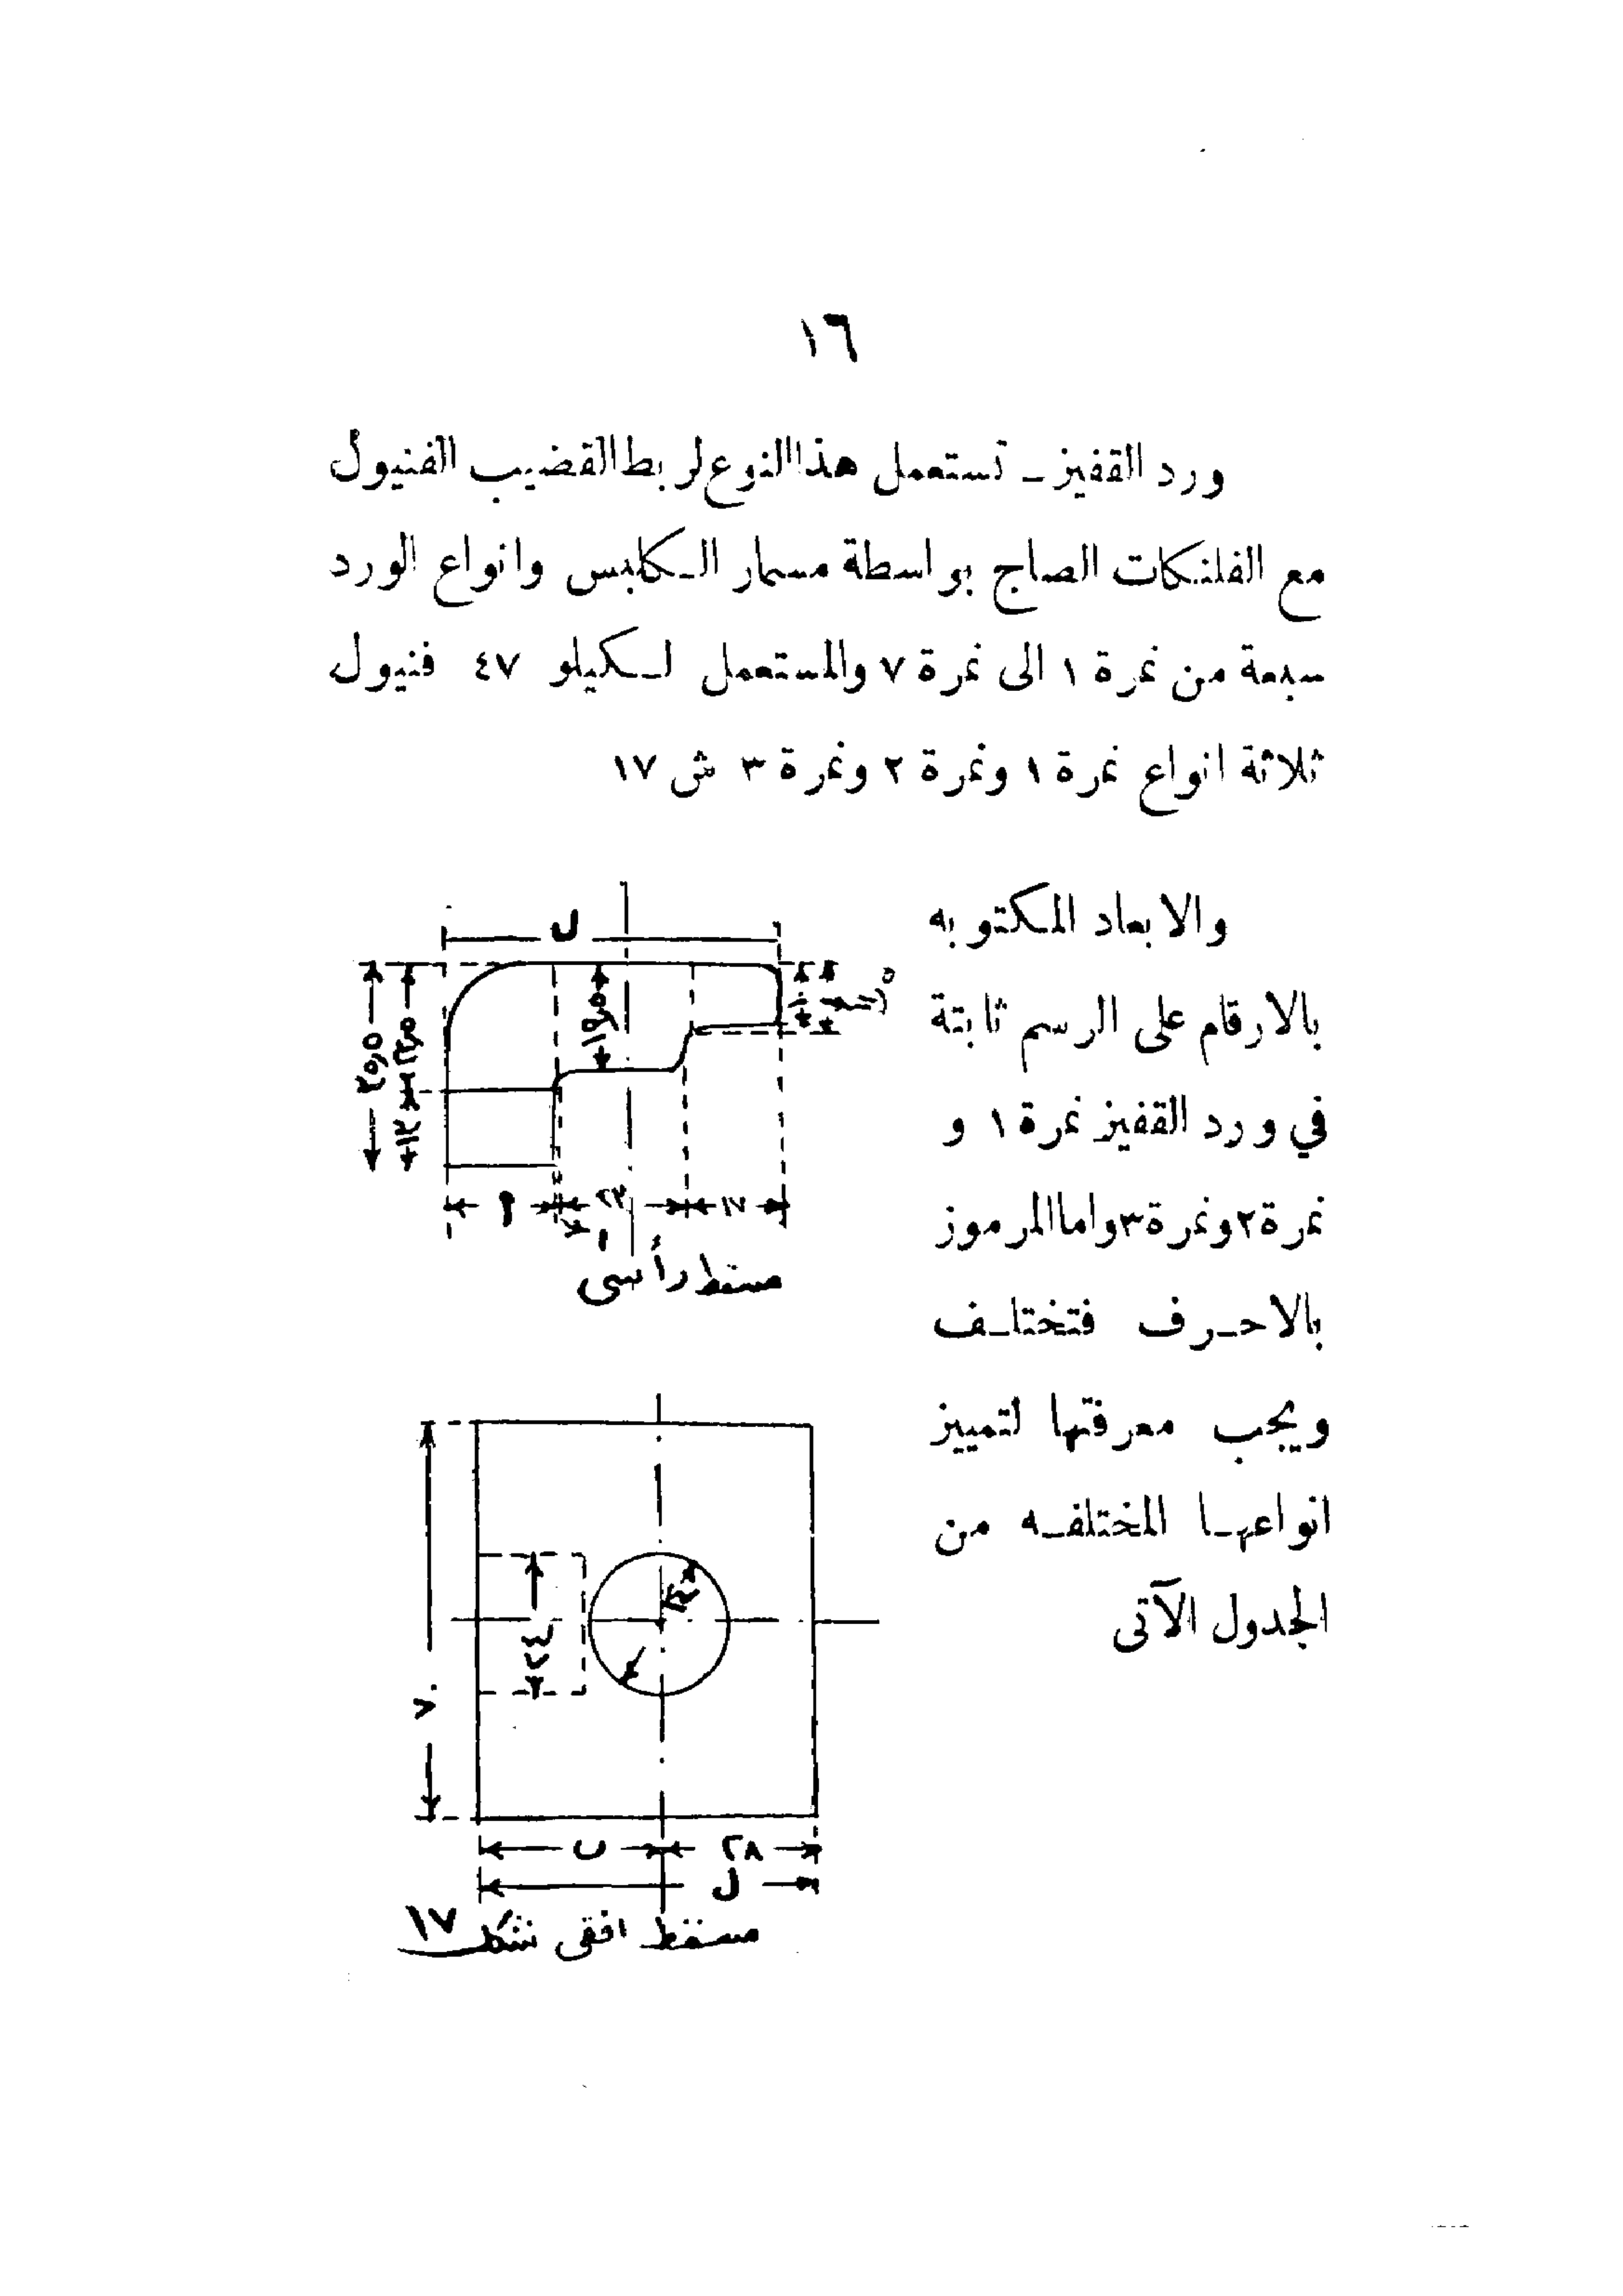 ١٦
ورد القفيز ــ تستعمل هذا النوع لربط القضيب الفنيول
مع الفلنكات الصاج بواسطة مسمار الكلبس وانواع الورد
سبعة من نمرة ١ الى نمرة ٧ والمستعمل لكيلو ٤٧ فنيول
ثلاثة انواع نمرة ١ ونمرة ٢ ونمرة ٣ ش ١٧
والابعاد المكتوبه
بالارقام على الرسم ثابتة
في ورد القفيز نمرة ١ و
نمرة ٢ ونمرة ٣ واما المرموز
بالاحرف فتختلف
ويجب معرفتها لتمييز
انواعها المختلفه من
الجدول الآتى
ل
١٩٫٥
٣٥٫٥
١٣
٢٣
١٧
١
مسقط رأسى
٢٤
٧٠
ب
٢٨
ل
مسقط افقى شكل ١٧